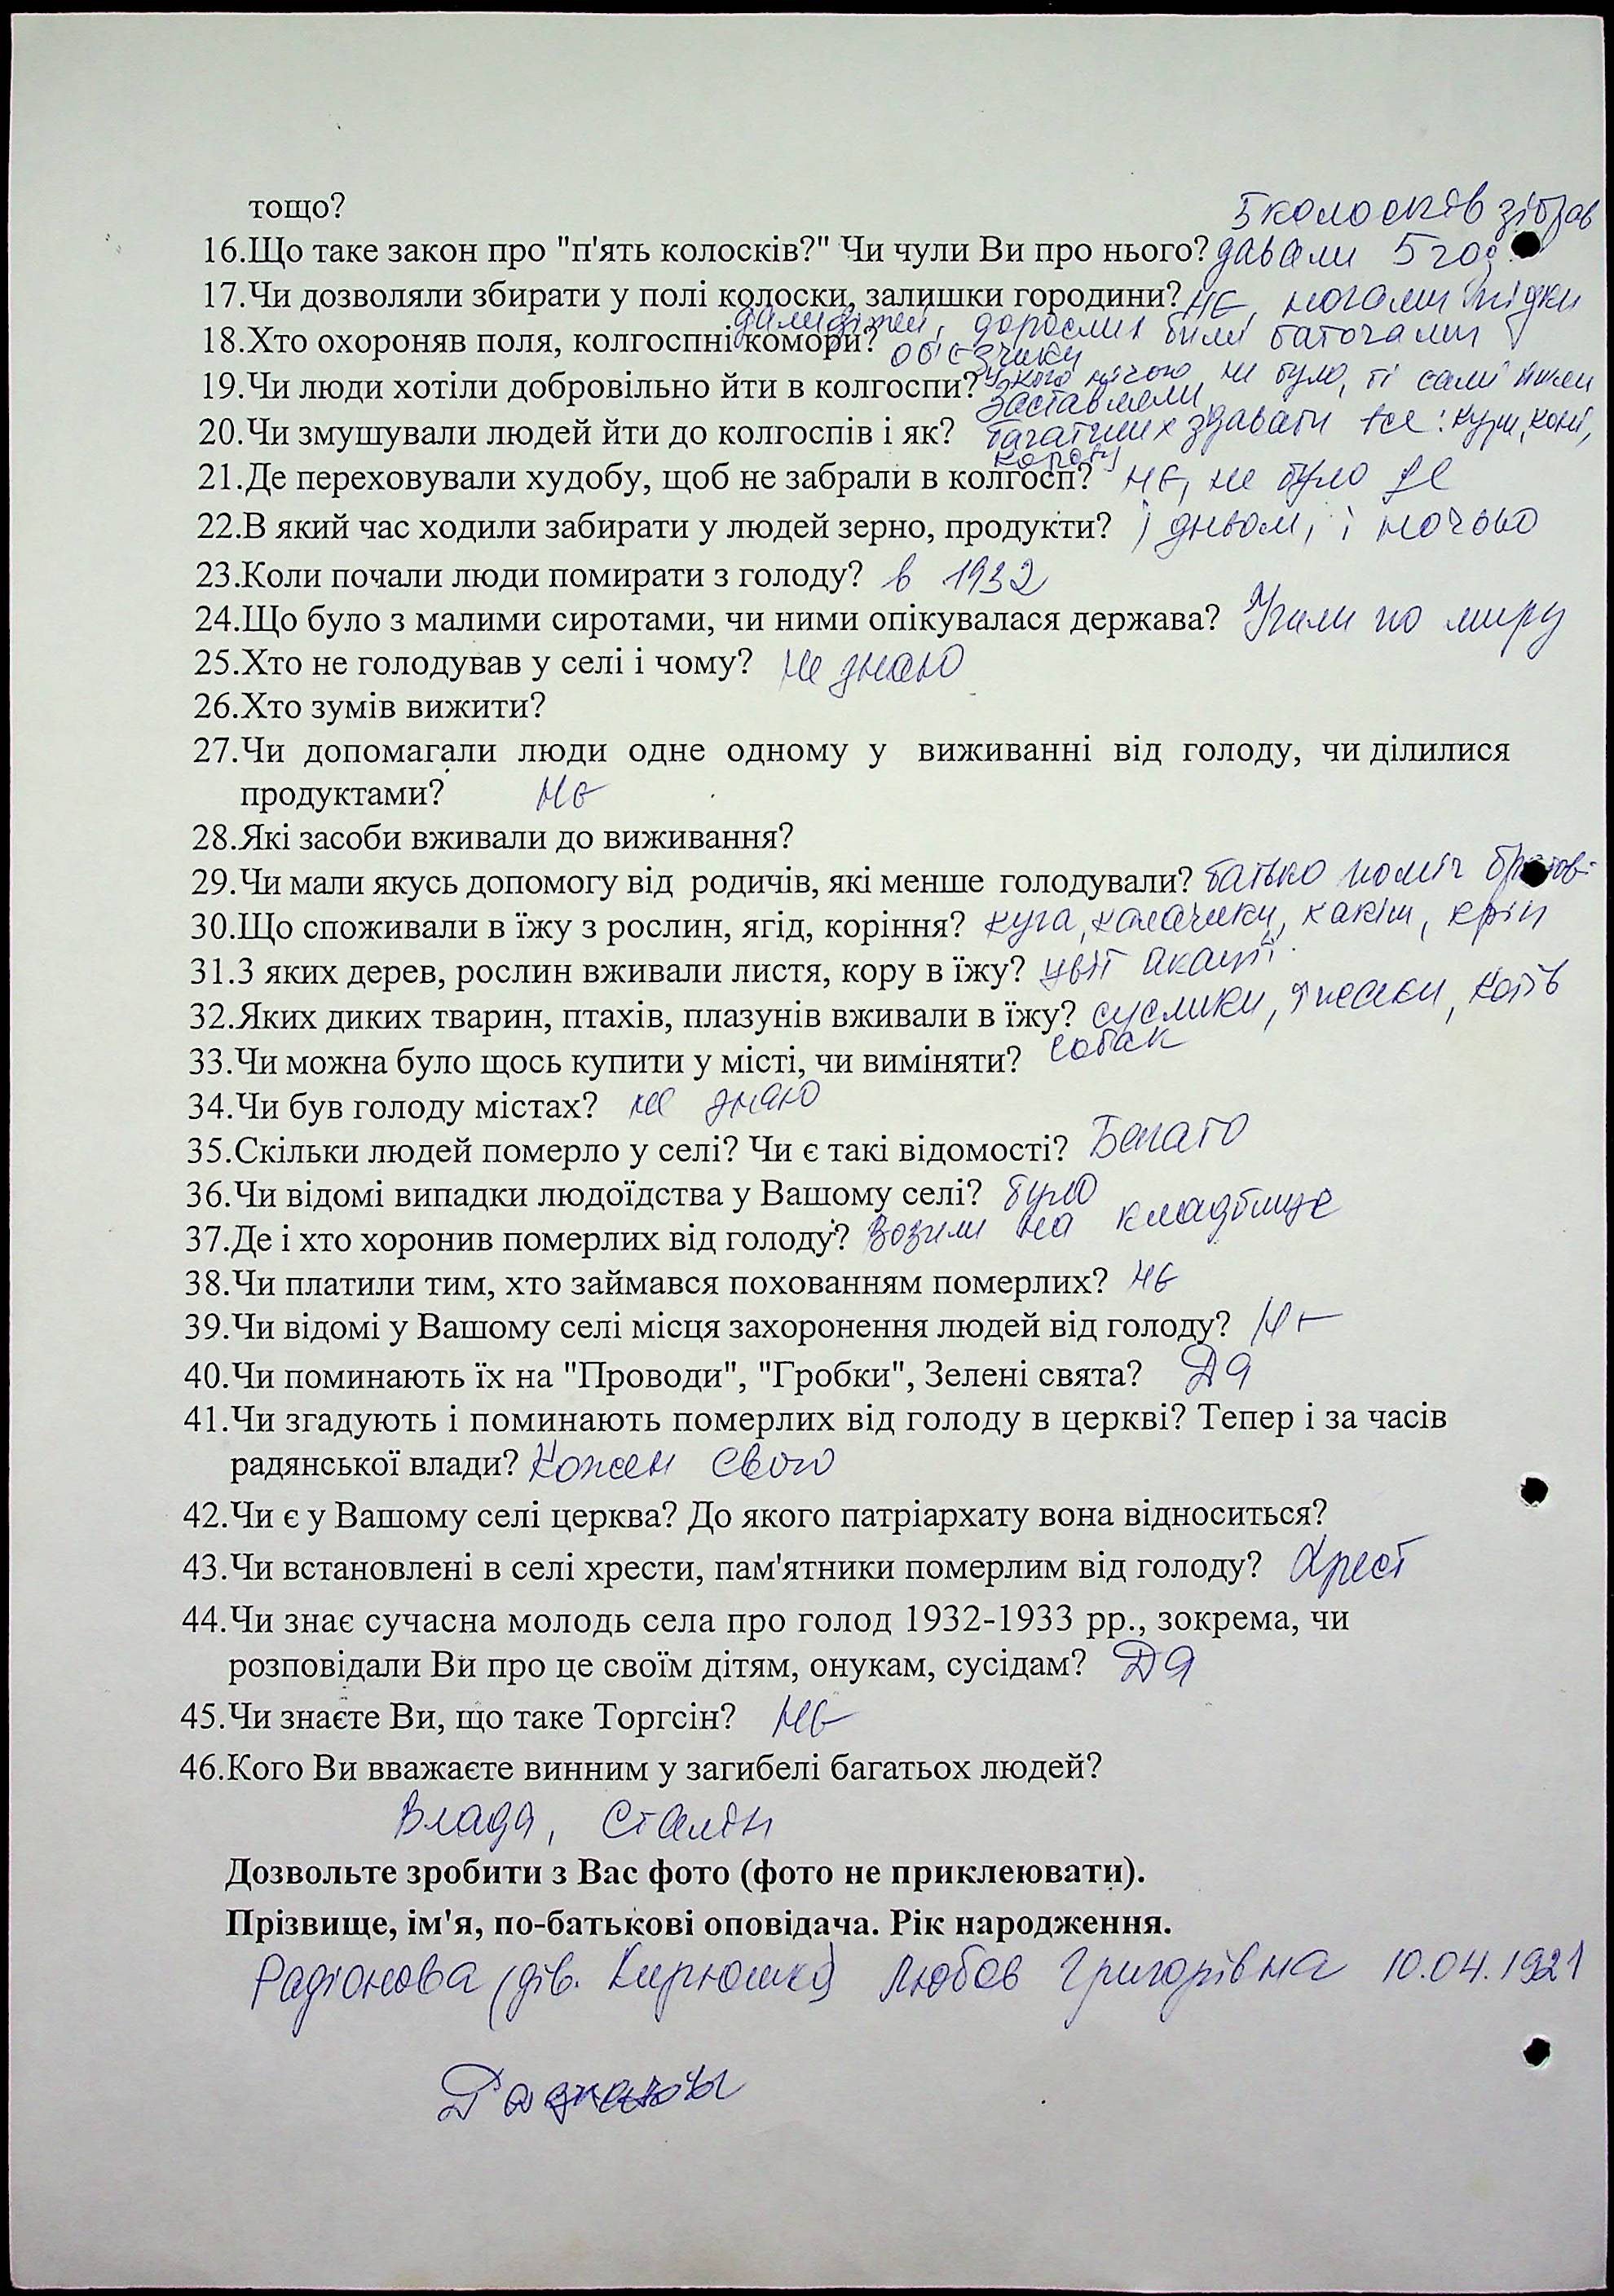 тощо?
5 колосків зібрав
16.Що таке закон про "п'ять колосків?" Чи чули Ви про нього? давали 5 год
17.Чи дозволяли збирати у полі колоски, залишки городини? не, ногами
дітей, дорослих били батогами
18.Хто охороняв поля, колгоспні комори? об'єзчики
19.Чи люди хотіли добровільно йти в колгоспи? у кого нічого не було, ті самі йшли
заставляли
20.Чи змушували людей йти до колгоспів і як? багатших здавати все: кури, коні,
корову
21.Де переховували худобу, щоб не забрали в колгосп? не, не було де
22.В який час ходили забирати у людей зерно, продукти? і дньом, і ночью
23.Коли почали люди помирати з голоду? в 1932
24.Що було з малими сиротами, чи ними опікувалася держава? по миру
25.Хто не голодував у селі і чому? не знаю
26.Хто зумів вижити?
27.Чи допомагали люди одне одному у виживанні від голоду, чи ділилися
продуктами? не
28.Які засоби вживали до виживання?
29.Чи мали якусь допомогу від родичів, які менше голодували? батько поміг братові
30.Що споживали в їжу з рослин, ягід, коріння? куга, калачики, какіш, кріп
31.З яких дерев, рослин вживали листя, кору в їжу? цвіт акації
32.Яких диких тварин, птахів, плазунів вживали в їжу? суслики, котів
собак
33.Чи можна було щось купити у місті, чи виміняти?
34.Чи був голоду містах? не знаю
35.Скільки людей померло у селі? Чи є такі відомості? Багато
36.Чи відомі випадки людоїдства у Вашому селі? було
37.Де і хто хоронив померлих від голоду? возили на кладбище
38.Чи платили тим, хто займався похованням померлих? не
39.Чи відомі у Вашому селі місця захоронення людей від голоду? Не
40.Чи поминають їх на "Проводи", "Гробки", Зелені свята? Да
41.Чи згадують і поминають померлих від голоду в церкві? Тепер і за часів
радянської влади? Кожен свого
42.Чи є у Вашому селі церква? До якого патріархату вона відноситься?
43.Чи встановлені в селі хрести, пам'ятники померлим від голоду? Хрест
44.Чи знає сучасна молодь села про голод 1932-1933 рр., зокрема, чи
розповідали Ви про це своїм дітям, онукам, сусідам? Да
45.Чи знаєте Ви, що таке Торгсін? Не
46.Кого Ви вважаєте винним у загибелі багатьох людей?
Влада, Сталін
Дозвольте зробити з Вас фото (фото не приклеювати).
Прізвище, ім'я, по-батькові оповідача. Рік народження.
Радіонова (дів. Кирюшко) Любов Григорівна 10.04.1921